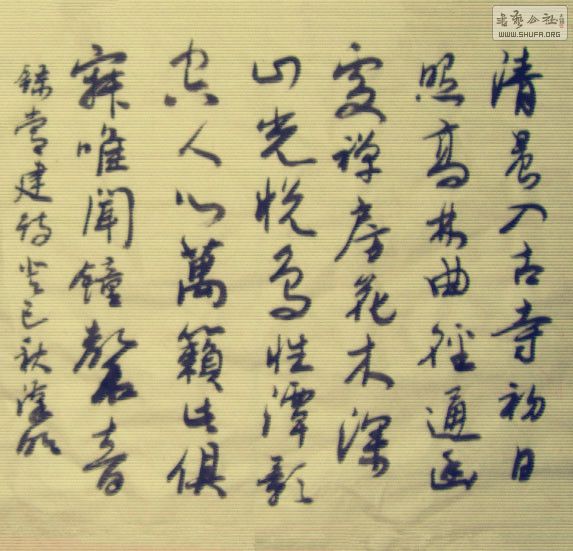 清晨入古寺初日
照高林曲徑通幽
處禅房花木深
山光悦鸟性潭影
空人心萬籟此俱
寂唯聞鐘磬音
錄常建诗癸巳秋
書藝公社
WWW.SHUFA.ORG